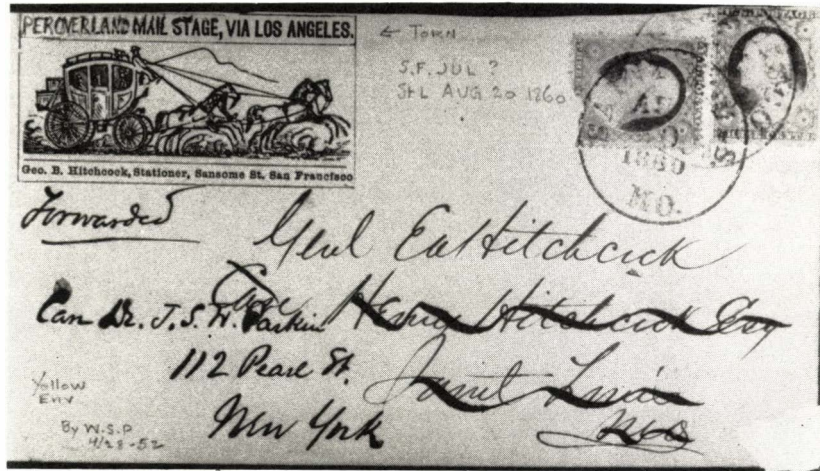 PER OVERLAND MAIL STAGE, VIA LOS ANGELES.
Geo. B. Hitchcock, Stationer, Sansome St. San Francisco
← TORN
S.F. JUL ?
StL AUG 20 1860
1860
MO.
Forwarded
Genl EA Hitchcock
Care Henry Hitchcock Esq
Saint Louis
Care Dr. J. S. H. Parkin
112 Pearl St.
New York
Yellow
Env
By W.S.P
4/28-52